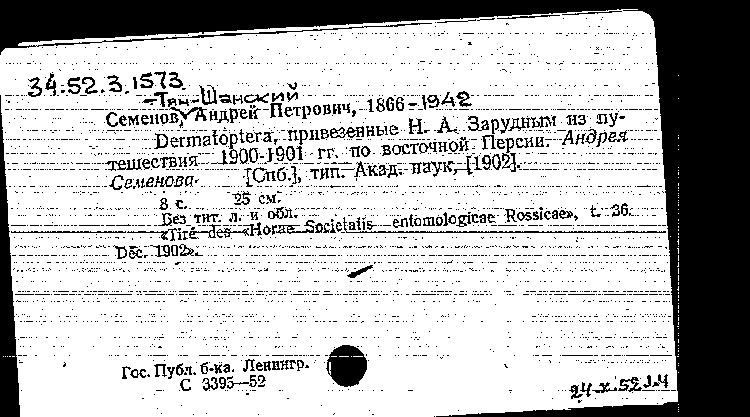 34:52.3.1573
-Тян-Шанский
Семенов, Андрей Петрович, 1866-1942
Dermatoptera, привезенные Н. А. Зарудным из пу-
тешествия 1900-1901 гг. по восточной Персии. Андрея
Семенова. [Спб.], тип. Акад. наук, [1902].
8 с. 25 см.
Без тит. л. и обл.
«Tiré des «Horae Societatis entomologicae Rossicae», t. 36.
Déc. 1902».
Гос. Публ. б-ка. Ленингр.
С 3395—52